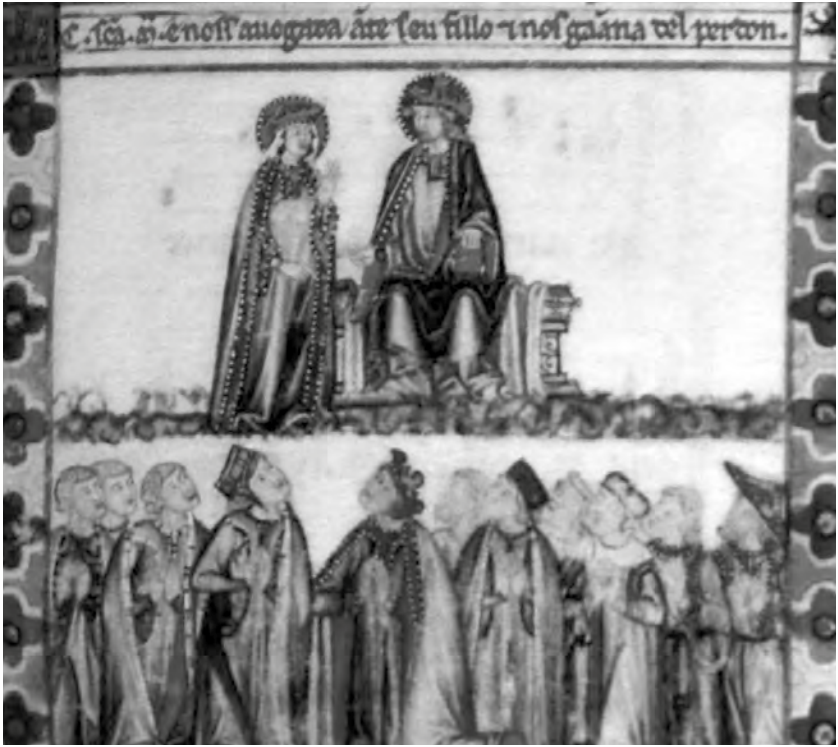 C. sc̃a. m̃. é noss auogada ãte seu fillo ⁊ nos gaãna del perdon.